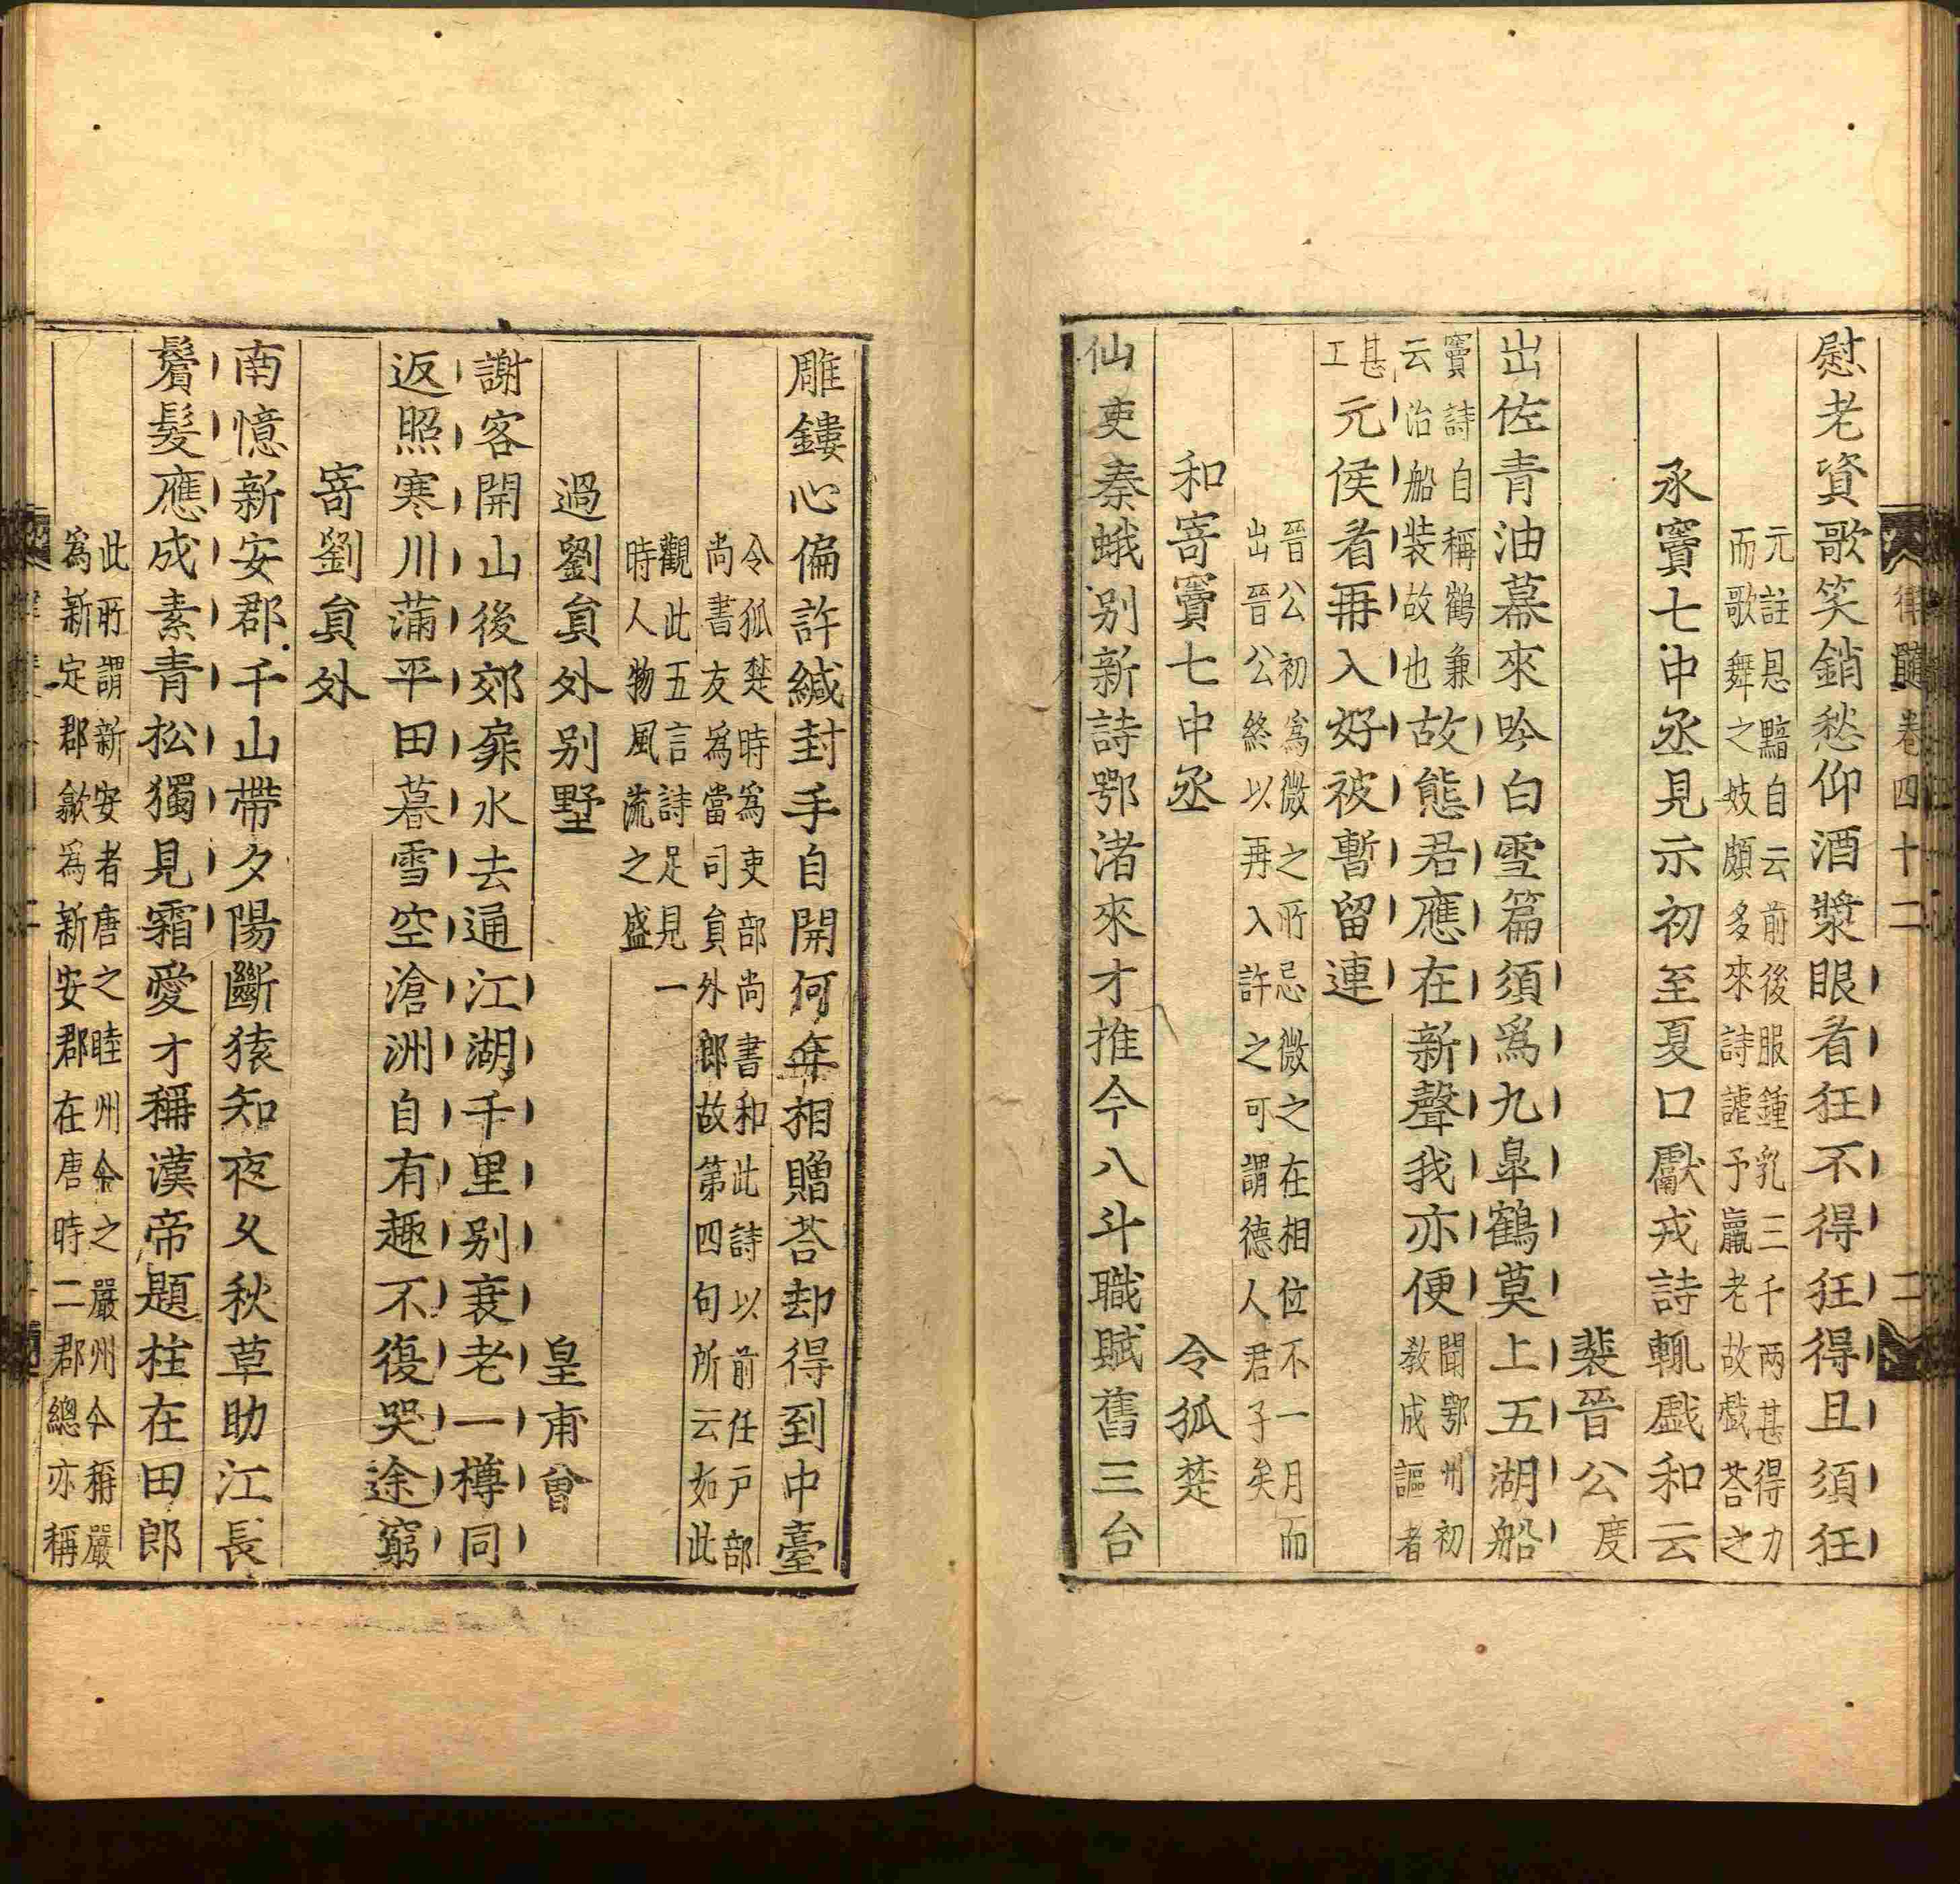 慰老資歌笑銷愁仰酒漿眼看狂不得狂得且須狂
元註思黯自云前後服鍾乳三千兩甚得力
而歌舞之妓頗多來詩謔予羸老故戲荅之
承竇七中丞見示初至夏口獻戎詩輒戲和云
裴晉公度
出佐青油幕來吟白雪篇須爲九臯鶴莫上五湖船
竇詩自稱鶴兼
云治船裝故也
故態君應在新聲我亦便
聞鄂州初
敎成謳者
甚
工
元侯看再入好被暫留連
晉公初爲微之所忌微之在相位不一月而
出晉公終以再入許之可謂德人君子矣
和寄竇七中丞
令狐楚
仙吏秦蛾别新詩鄂渚來才推今八斗職賦舊三台
雕鏤心偏許緘封手自開何年相贈荅却得到中臺
令狐楚時爲吏部尚書和此詩以前任戶部
尚書友爲當司員外郎故第四句所云如此
觀此五言詩足見一
時人物風流之盛
過劉貟外别墅
皇甫曾
謝客開山後郊扉水去通江湖千里别衰老一樽同
返照寒川滿平田暮雪空滄洲自有趣不復哭途窮
寄劉貟外
南憶新安郡千山帶夕陽斷猿知夜久秋草助江長
鬢髮應成素青松獨見霜愛才稱漢帝題柱在田郎
此所謂新安者唐之睦州今之嚴州今稱嚴
爲新定郡歙爲新安郡在唐時二郡總亦稱
律髓卷四十二
二